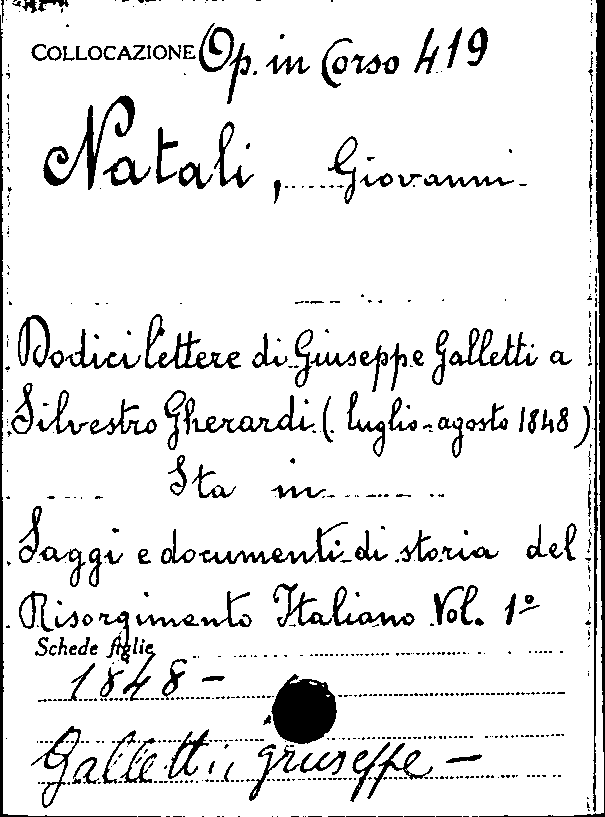 COLLOCAZIONE Op. in Corso 419
Natali, Giovanni
Dodici lettere di Giuseppe Galletti a
Silvestro Gherardi (luglio-agosto 1848)
Sta in
Saggi e documenti di storia del
Risorgimento Italiano Vol. 1º
Schede figlie
1848 -
Galletti, giuseppe -